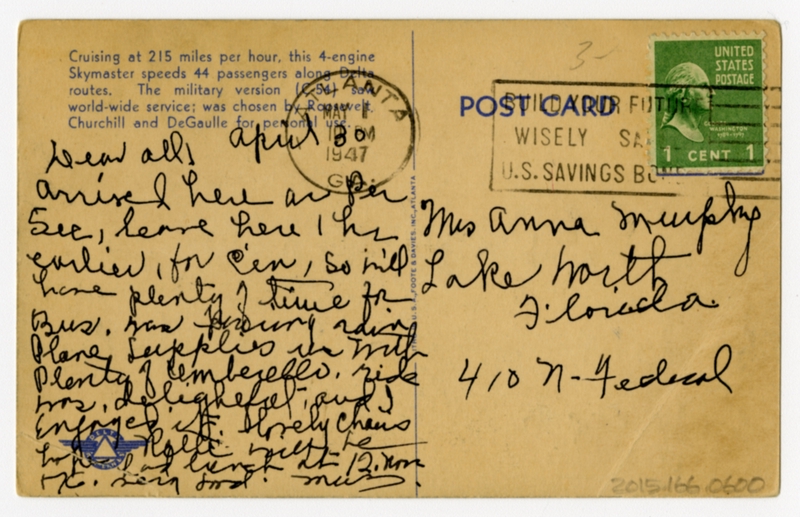 Cruising at 215 miles per hour, this 4-engine
Skymaster speeds 44 passengers along Delta
routes. The military version (C-54) saw
world-wide service; was chosen by Roosevelt,
Churchill and DeGaulle for personal use.
april 30
Dear all,
arrived here as Per
See, leave here 1 hr
earlier, for Cin, So will
have plenty of time for
Bus. was Pouring rain
Plane Supplies us with
Plenty of umberello. ride
was, delightful, and I
Enjoyed it. lovely
had lunch at 12. noon
ATLANTA
MAY 1
PM
1947
GA.
BUILD YOUR FUTURE
WISELY SA
U.S. SAVINGS BO
POST CARD
UNITED
STATES
POSTAGE
WASHINGTON
1 CENT 1
Mrs Anna Murphy
Lake Worth
Florida
410 N-Federal
U.S.A. FOOTE & DAVIES, INC., ATLANTA
DELTA
2015.166.0600